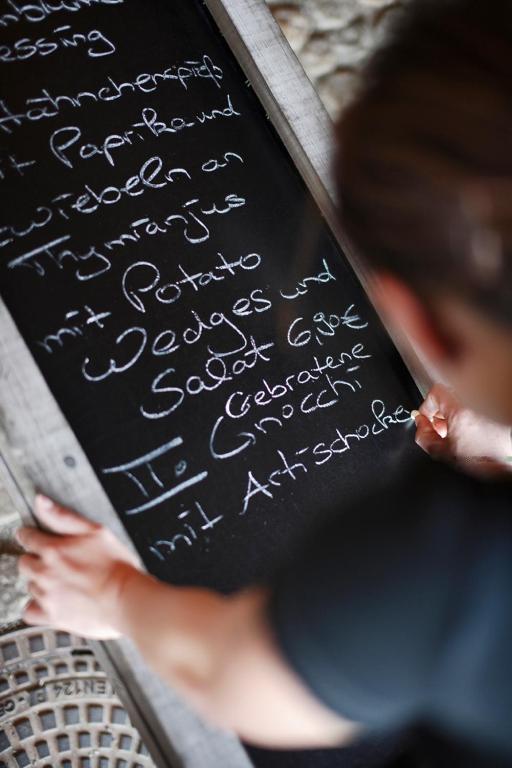 essing
Hähnchenspieß
mit Paprika und
Zwiebeln an
Thymianjus
mit Potato
Wedges und
Salat 6,90€
II. Gebratene
Gnocchi
mit Artischocke
EN124